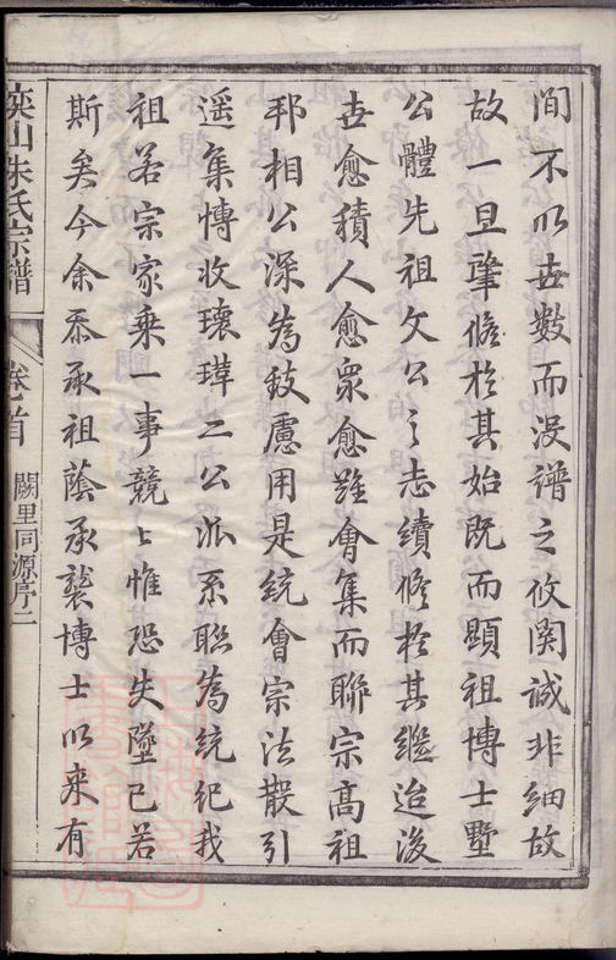 間不以世數而沒譜之攸関誠非細故
故一旦肇脩於其始既而顕祖博士墅
公體先祖文公之志續脩於其繼迨後
世愈積人愈眾愈難會集而聯宗高祖
邦相公深為致慮用是統會宗法散引
遥集慱收瓌瑋二公派系聯為統纪我
祖若宗家乗一事競〻惟恐失墜已若
斯矣今余忝承祖蔭承襲博士以来有
奕山朱氏宗譜
卷首
闕里同源序二